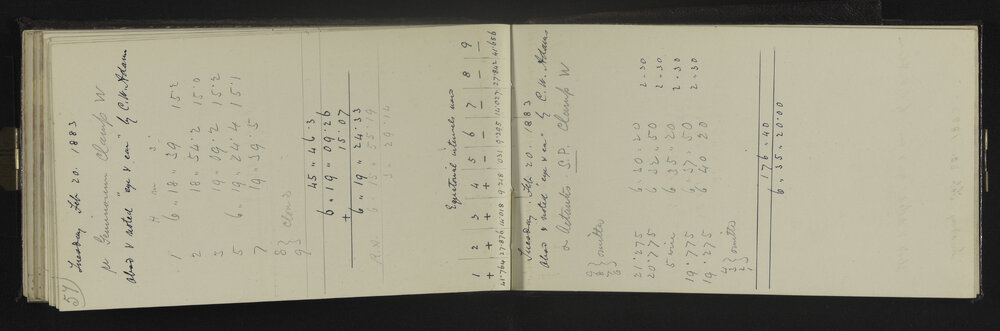 57
Tuesday Feb 20. 1883
μ Geminorum Clamp W
obsd & noted "eye & ear" by C.W. Adams
H m s
1 6 " 18 " 39 15.2
2 18 " 54.2 15.0
3 19 " 09.2 15.2
5 6 " 19 " 24.4 15.1
7 19 " 39.5
8 } clouds
9 }
45 " 46.3
6 " 19 " 09.26
+ 15.07
6 " 19 " 24.33
Equatorial intervals used
1 2 3 4 5 6 7 8 9
+ + + + - - - - -
41.764 27.876 14.018 9.218 .031 9.295 14.027 27.842 41.656
Tuesday. Feb 20. 1883
obsd & noted "eye & ear" by C.W. Adams
S.P. Clamp W
9 } omitted
8 }
21.275 6.30.20 2.30
20.775 6.32.50 2.30
5 wire 6.35.20 2.30
19.775 6.37.50 2.30
19.275 6.40.20
4 } omitted
3 }
2 }
1 }
176.40
6.35.20.00